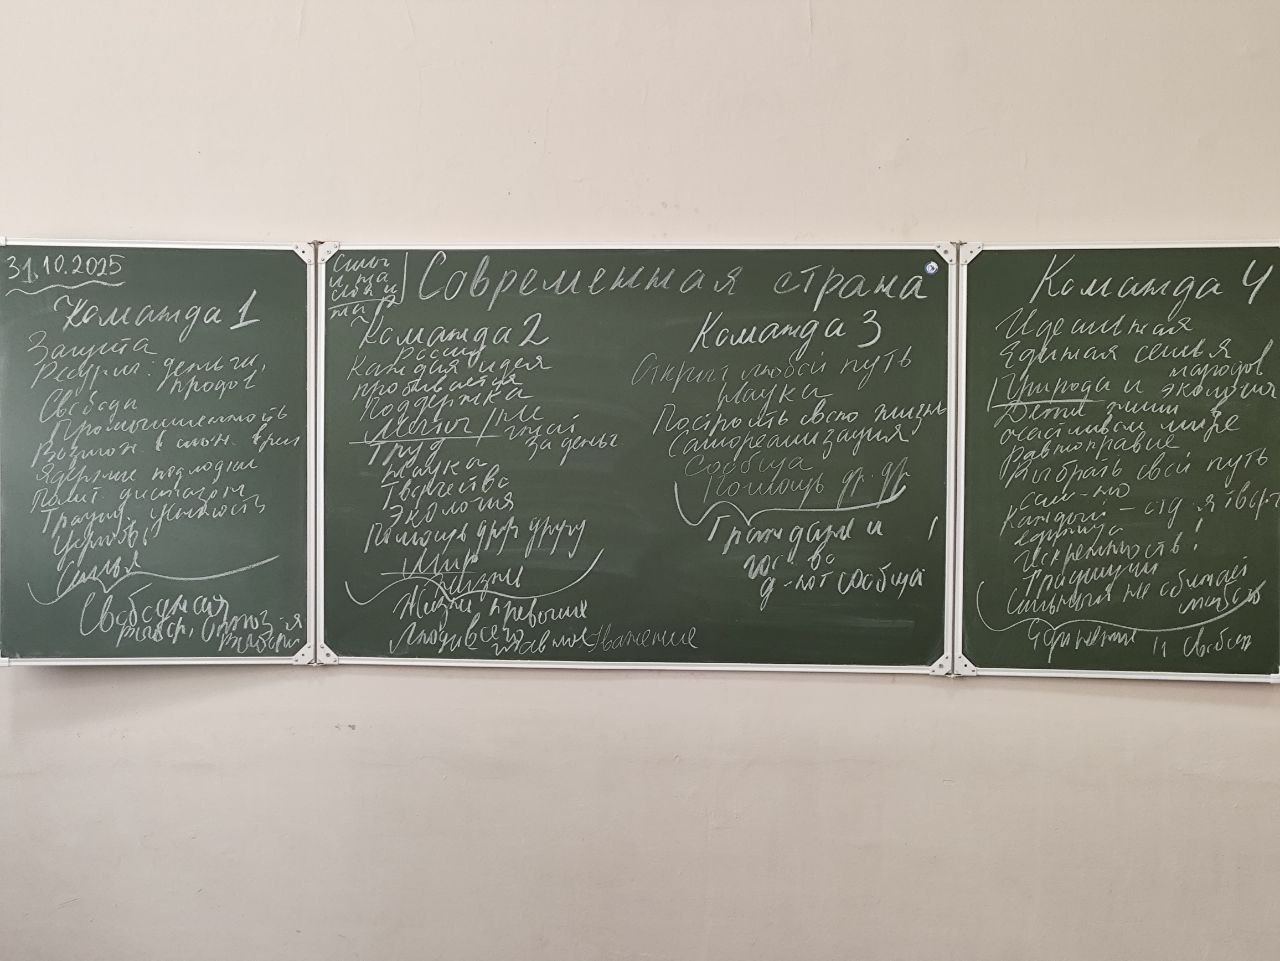 31.10.2025
Команда 1
Защита
Ресурсы: деньги,
продов
Свобода
Промышленность
Возмож. в слож. врем
Ядерные подлодки
Полит.
Традиц. ценность
Церковь
Семья
Свободная
выбор,
Современная страна
Команда 2
России
Каждая идея
пробивается
Поддержка
Мечты / не
за деньг
Труд
Наука
Творчество
Экология
Помощь друг другу
Мир
Жизни
Жизнь превыше
всего
Люди главное Уважение
Команда 3
Открыт любой путь
Наука
Построить свою жизнь
Самореализация
Сообща
Помощь др. др.
Граждане и
гос-во
д-ют сообща
Команда 4
Идеальная
Единая семья
народов
Природа и экология
Дети
счастливом мире
Равноправие
Выбрать свой путь
сам-но
Каждый – отд-я творч
единица
Искренность!
Традиции
Сильный не обижает
слабого
Единение и свобода